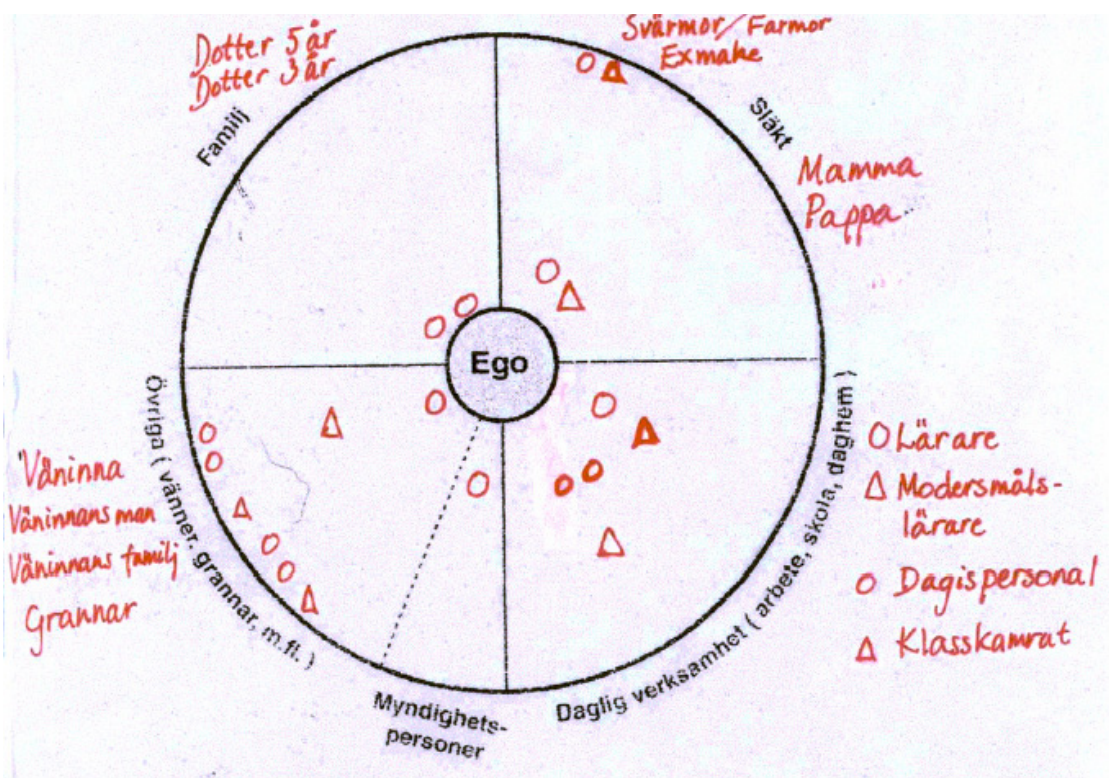 Dotter 5 år
Dotter 3 år
Familj
Svärmor/Farmor
Exmake
Släkt
Mamma
Pappa
Ego
Övriga ( vänner, grannar, m.fl. )
Väninna
Väninnans man
Väninnans familj
Grannar
Myndighets-
personer
Daglig verksamhet ( arbete, skola, daghem )
Lärare
Modersmåls-
lärare
Dagispersonal
Klasskamrat